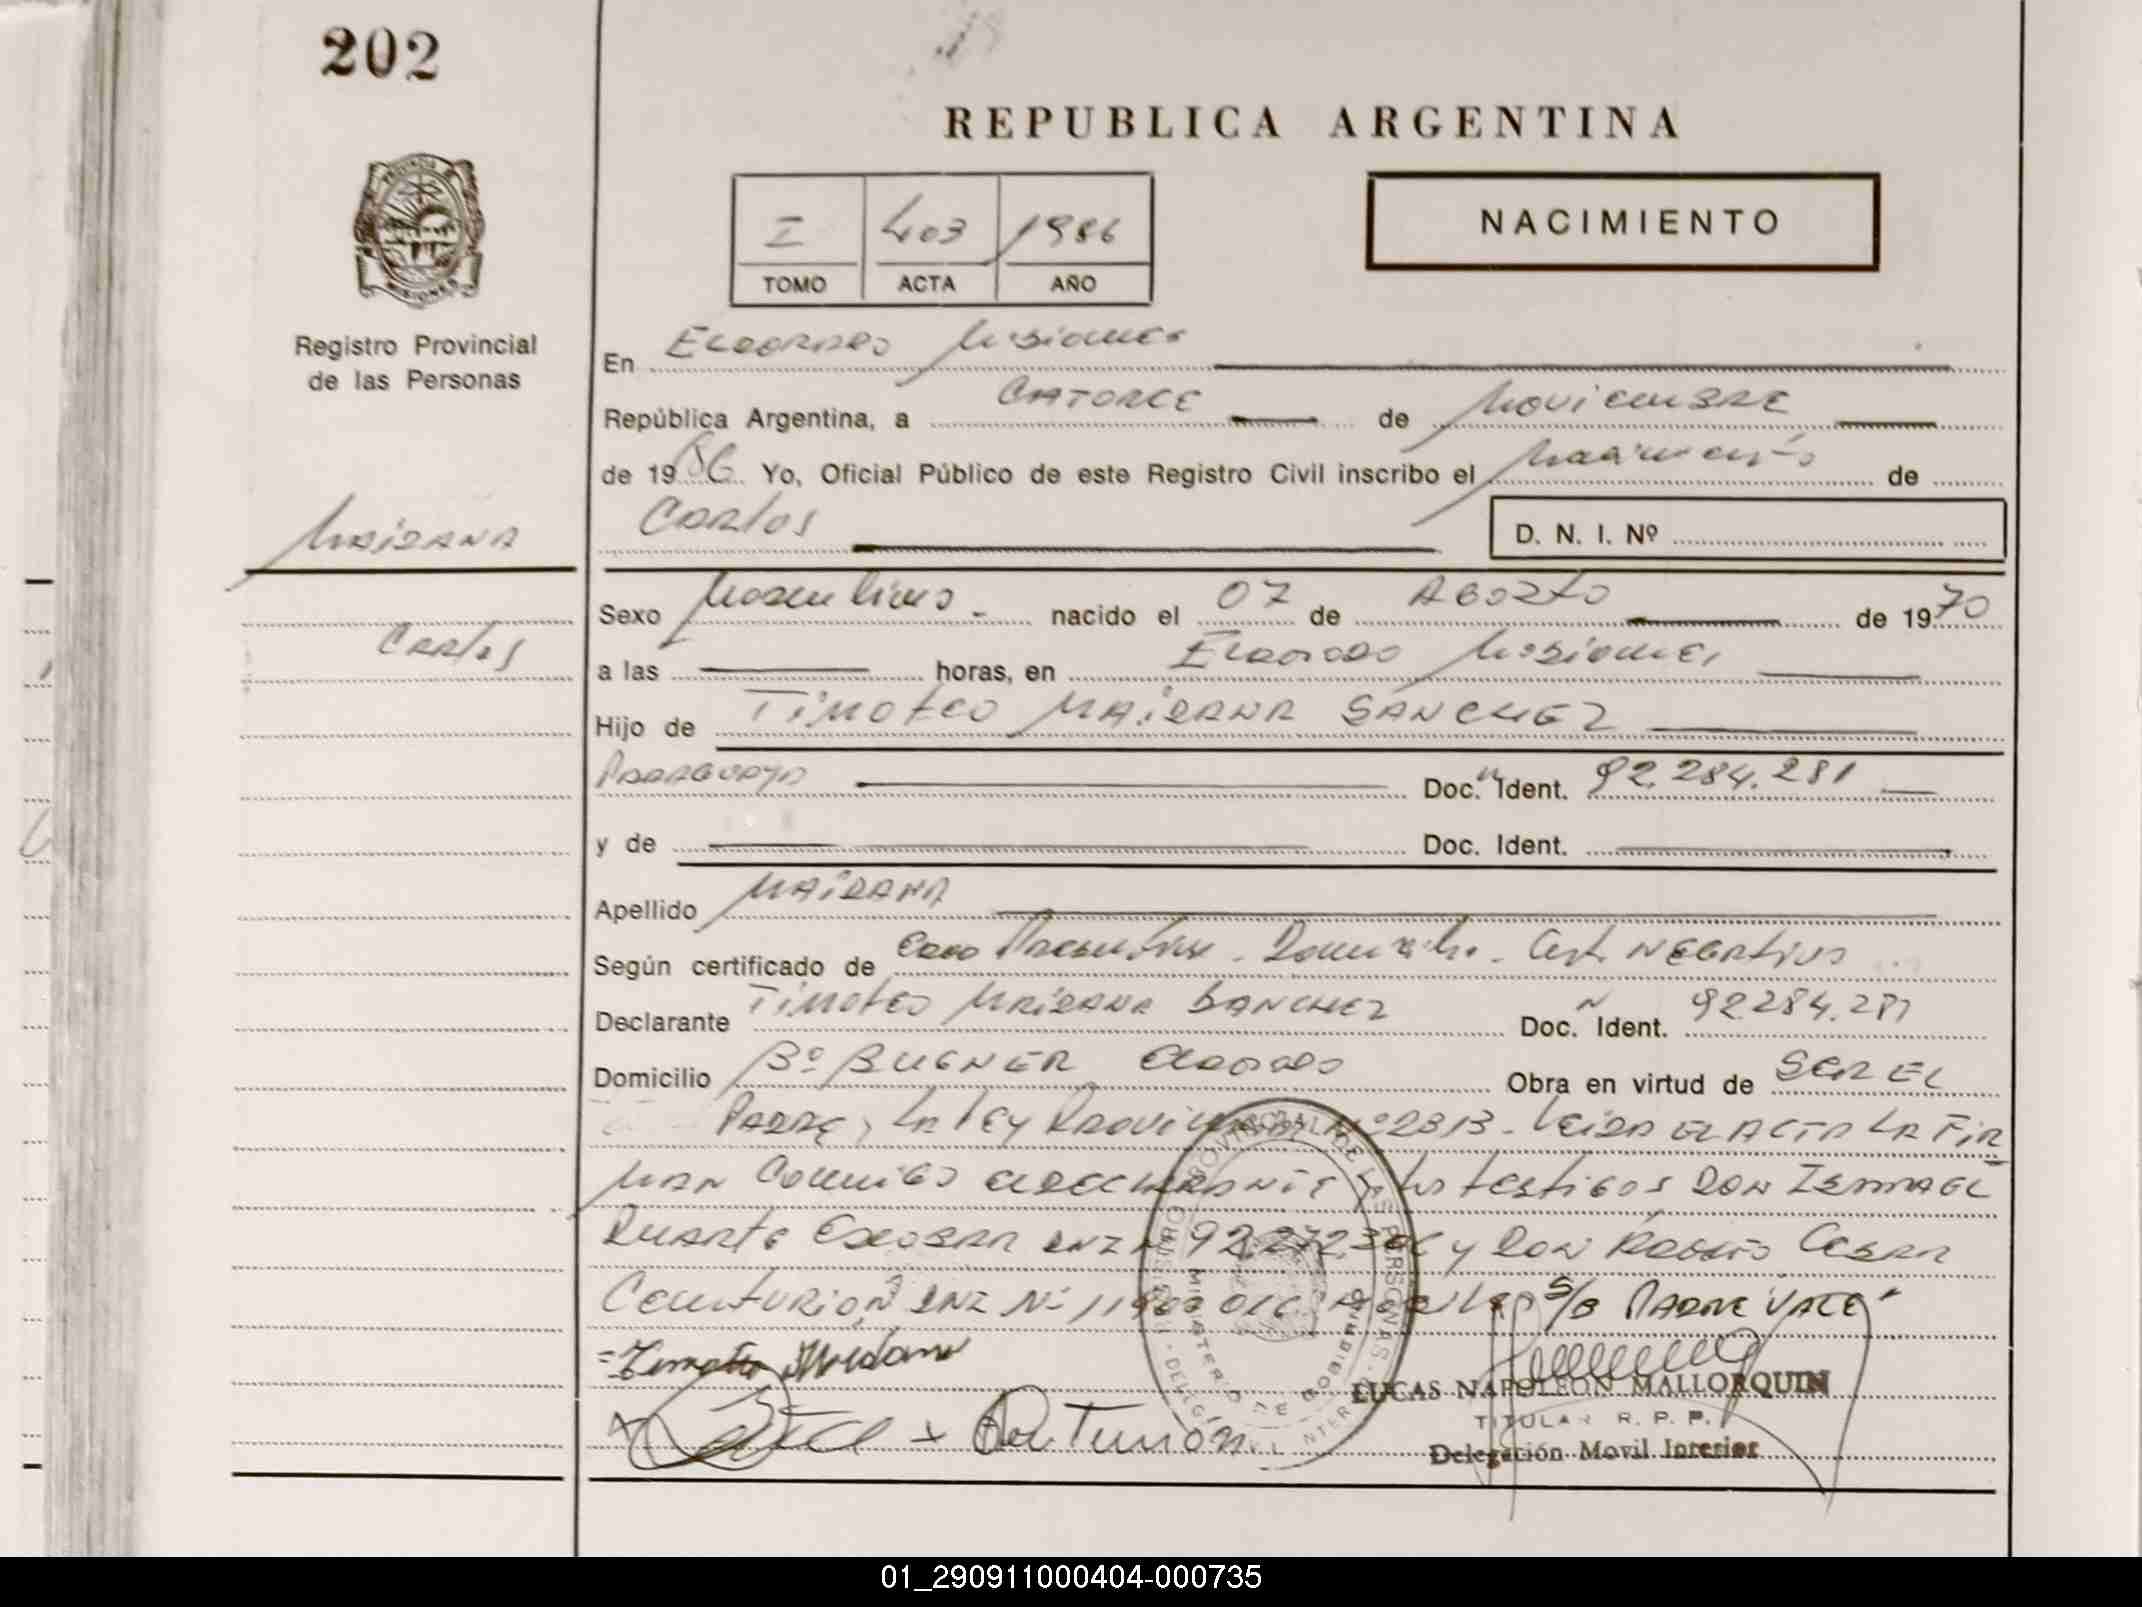 202
REPUBLICA ARGENTINA
NACIMIENTO
I 403 1986
TOMO ACTA AÑO
PROVINCIA
MISIONES
Registro Provincial
de las Personas
MAIDANA
Carlos
En ELDORADO Misiones
República Argentina, a CATORCE de NoviemBRE
de 1986 Yo, Oficial Público de este Registro Civil inscribo el Nacimiento de
Carlos
D. N. I. Nº
Sexo Masculino - nacido el 07 de AGOSTO de 1970
a las horas, en Eldorado Misiones
Hijo de TIMOTEO MAIDANA SANCHEZ
PARAGUAYO Doc. Ident. 92.284.281
y de Doc. Ident.
Apellido MAIDANA
Según certificado de - Domicilio - Cert NEGATIVO
Declarante TIMOTEO MAIDANA SANCHEZ Doc. Ident. 92284.281
Domicilio Bº Eldorado Obra en virtud de SER EL
PADRE y Ley Nº 2313 - LEIDA EL ACTA LA FIR
MAN Conmigo el DECLARANTE y los testigos DON ISMAEL
Duarte Escobar DNI Nº y DON CESAR
Centurion DNI Nº S/B PADRE VALE
LUCAS NAPOLEON MALLORQUIN
TITULAR R. P. P.
Delegación Movil Interior
REGISTRO PROVINCIAL DE LAS PERSONAS
MINISTERIO DE GOBIERNO
01_290911000404-000735